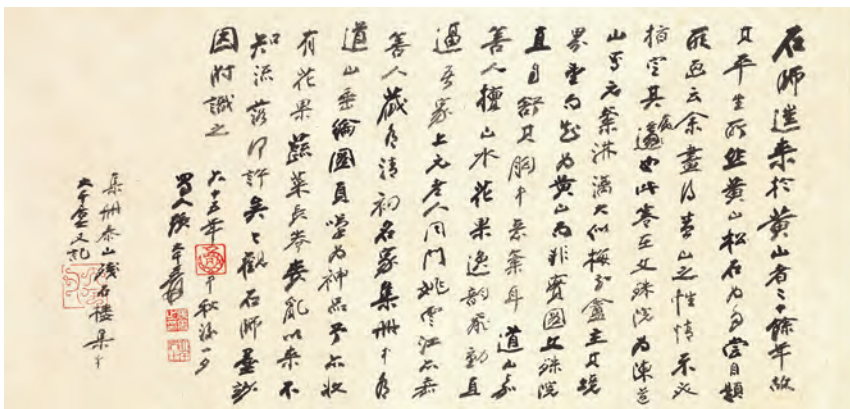 石師遊來於黃山者三十餘年故
其平生所繪黃山松石为多嘗自題
所画云余盡得黃山之性情不必
指定其處也此卷在文殊院為陳道
山寫元筆淋漓大似梅瞿盦主其境
界为黃山为非實圖文殊院
直自舒其胸中意筆耳道山嘉
善人擅山水花果逸韵飛動直
逼吾家上元老人同門姚雲江亦嘉
善人藏有清初名家集冊中有
道山垂綸圖真學为神品予亦收
有花果蔬菜長卷喪亂以来不
知流落何許矣今觀石師墨妙
因附識之
六十五年中秋後一夕
蜀人張大千爰
集冊泰山殘石樓集中
大千爰又記